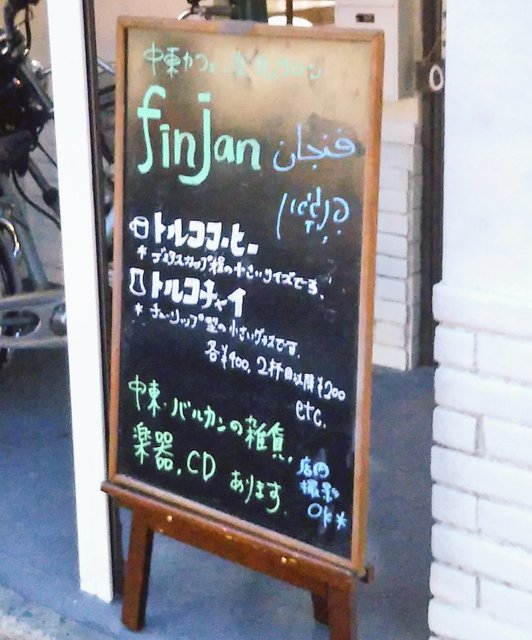 中東カフェ
finjan فنجان
פינג'ן
トルココーヒー
* デミタスカップ程の小さいサイズです。
トルコチャイ
* チューリップ型の小さいグラスです。
各¥400, 2杯目以降¥200
etc.
中東・バルカンの雑貨,
楽器, CD あります。
店内
撮影
OK*